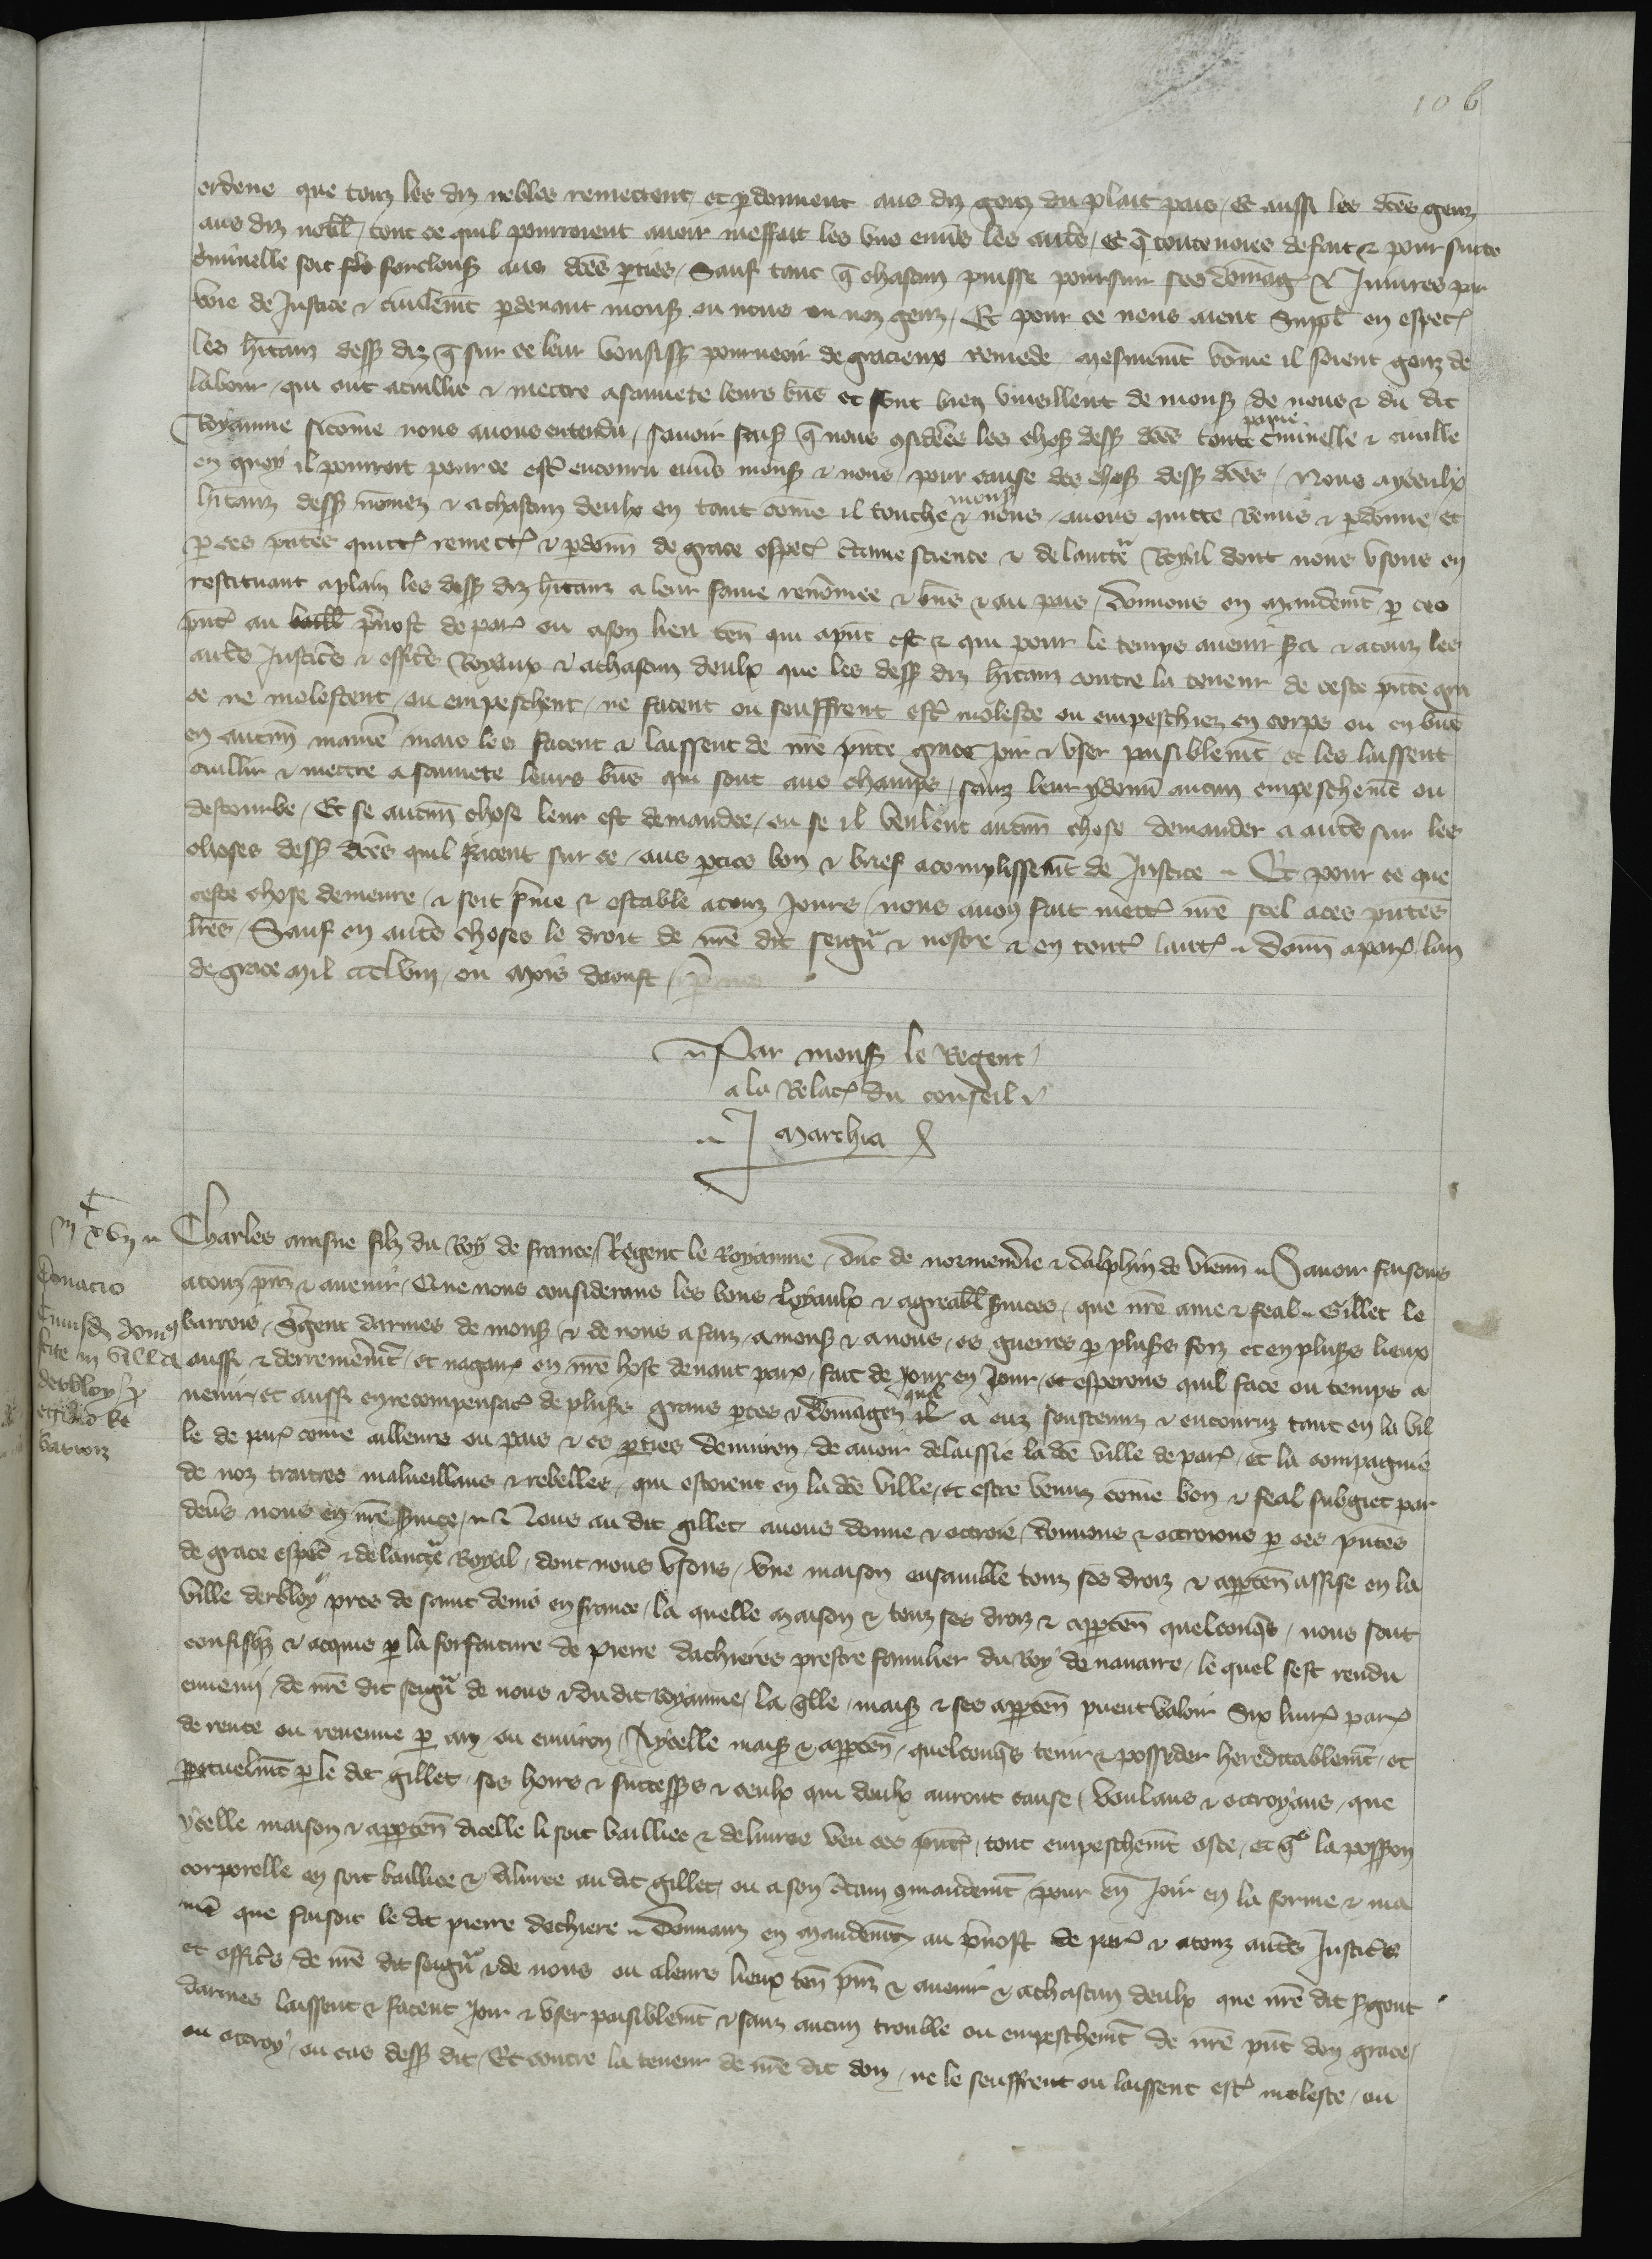 106
ordene que touz les diz nobles remettent et pardonnent aus diz genz du plait pais, Et aussi les dces genz
aus diz nobl, tout ce quil pourroient avoir meffait les uns envs les autres, et q toutevoies de fait & pour suite
criminelle soit forclouse aus dces pties, Sauf tant q chascun puisse poursuir ses domag & Iniures par
voie de Justice & civilemt pdevant mons ou nous ou noz genz, Et pour ce nous aient Suppl en espec
les hitanz dess diz q sur ce leur vousissions pourveoir de gracieux remede mesmemt come il soient genz de
labour, qui ont a cuillir & mettre a sauvete leurs bns et sont bien vueillent de mons de nous & du dit
Royaume sicome nous avons entendu, Savoir fais q nous considers les choses dess dces toute paine criminelle & civille
en quoy il pourroit pour ce estre encouru envs mons & nous, pour cause des choses dess dces, Nous aysceulx
hitanz dess nomez & a chascun deulx en tant come il touche mons & nous, avons quitte remis & pdonne, et
p ces pntes quitt remett & pdonn de grace espec ctaine science & de lauctte Royal dont nous usons en
restituant a plain les dess diz hitanz a leur fame renomee & bns & au pais, Donnons en Mandemt p ces
pnt au baill prevost de par ou a son lieu ten qui a pnt est & qui pour le temps avenir sera & a touz les
autres Justices & offices Royaux & a chascun deulx que les dess diz hitanz contre la teneur de ceste pnte gra
ce ne molestent, ou empeschent, ne facent ou seuffrent estre molestez ou empeschiez en corps ou en bns
en aucun maniere mais les facent & laissent de nre pnte grace joir & user paisiblemt et les laissent
cuillir & mettre a sauvete leurs bns qui sont aus champs, sanz leur y donn aucun empeschemt ou
destourbe, Et se aucun chose leur est demandee, ou se il veulent aucun chose demander a autres sur les
choses dess dces quil facent sur ce, aus pties bon & brief acomplissemt de Justice Et pour ce que
ceste chose demeure, & soit ferme & estable a touz Jours, nous avons fait mett nre scel a ces pntes
lres, Sauf en autres choses le droit de nre dit seignr & nostre & en tout lautr Donn a par lan
de grace Mil ccclviii, ou Mois daoust
Par mons le Regent
a la Relac du conseil
J Marchia
iii xx vi
Charles ainsne filz du Roy de france, Regent le Royaume, duc de normendie & dalphin de vienn Savoir faisons
Donacio
a touz pnz & avenir, Que nous considerans les bons loyaulx & agreabl services, que nre ame & feal Gillet le
cuiusdam domus
barrois, Sergent darmes de mons & de nous a faiz, a mons & a nous, es guerres p plusrs foiz et en plusrs lieux
site in villa
aussi & derrenieremt, et nagaires en nre host devant paris, fait de jour en jour, et esperons quil face ou temps a
derbloy p
venir, et aussi en recompensac de plusrs grans ptes & domages quil a euz soustenuz & encouruz tant en la vil
egidio le
le de par come ailleurs ou pais & es pties denviron, de avoir delaissie la de ville de par, et la compagnie
barrois
de noz traitres malveillans & rebelles, qui estoient en la de ville, et estre venuz come bon & feal subgiet par
devs nous en nre service, Nous au dit gillet avons donne & ottroie, donnons & ottroions p ces pntes
de grace espec & de lauctte Royal, dont nous usons, Une maison ensamble touz ses droiz & apptten assise en la
ville derbloy pres de saint denis en france, la quelle Maison & touz ses droiz & apptten quelconqs, nous sont
confisqz & acquis p la forfaiture de pierre dachieres prestre familier du Roy de navarre, le quel sest rendu
ennemi, de nre dit seignr de nous & du dit royaume, la qlle, mais & ses apptten puent valoir Six livr par
de rente ou revenue p an, ou environ, Aycelle mais & apptten, quelconqs tenir & possider hereditablemt, et
ppetuelmt p le dit gillet, ses hoirs & successs & ceulx qui deulx auront cause, Voulans & ottroyans, que
ycelle maison & apptten dicelle li soit bailliee & delivree veu ces pnt, tout empeschemt oste, et q la posson
corporelle en soit bailliee & delivree au dit gillet, ou a son ctain comandemt, pour en Joir en la forme & ma
niere que faisoit le dit pierre dechiere Donnanz en Mandemt au prevost de par & a touz autres Justices
et offices, de nre dit seignr & de nous ou a leurs lieux ten pnz & avenir & a chascun deulx que nre dit sergent
darmes laissent & facent Joir & user paisiblemt & sanz aucun trouble ou empeschemt de nre pnt don grace,
ou ottroy, ou cas dess dit, Et contre la teneur de nre dit don, ne le seuffrent ou laissent estre moleste, ou